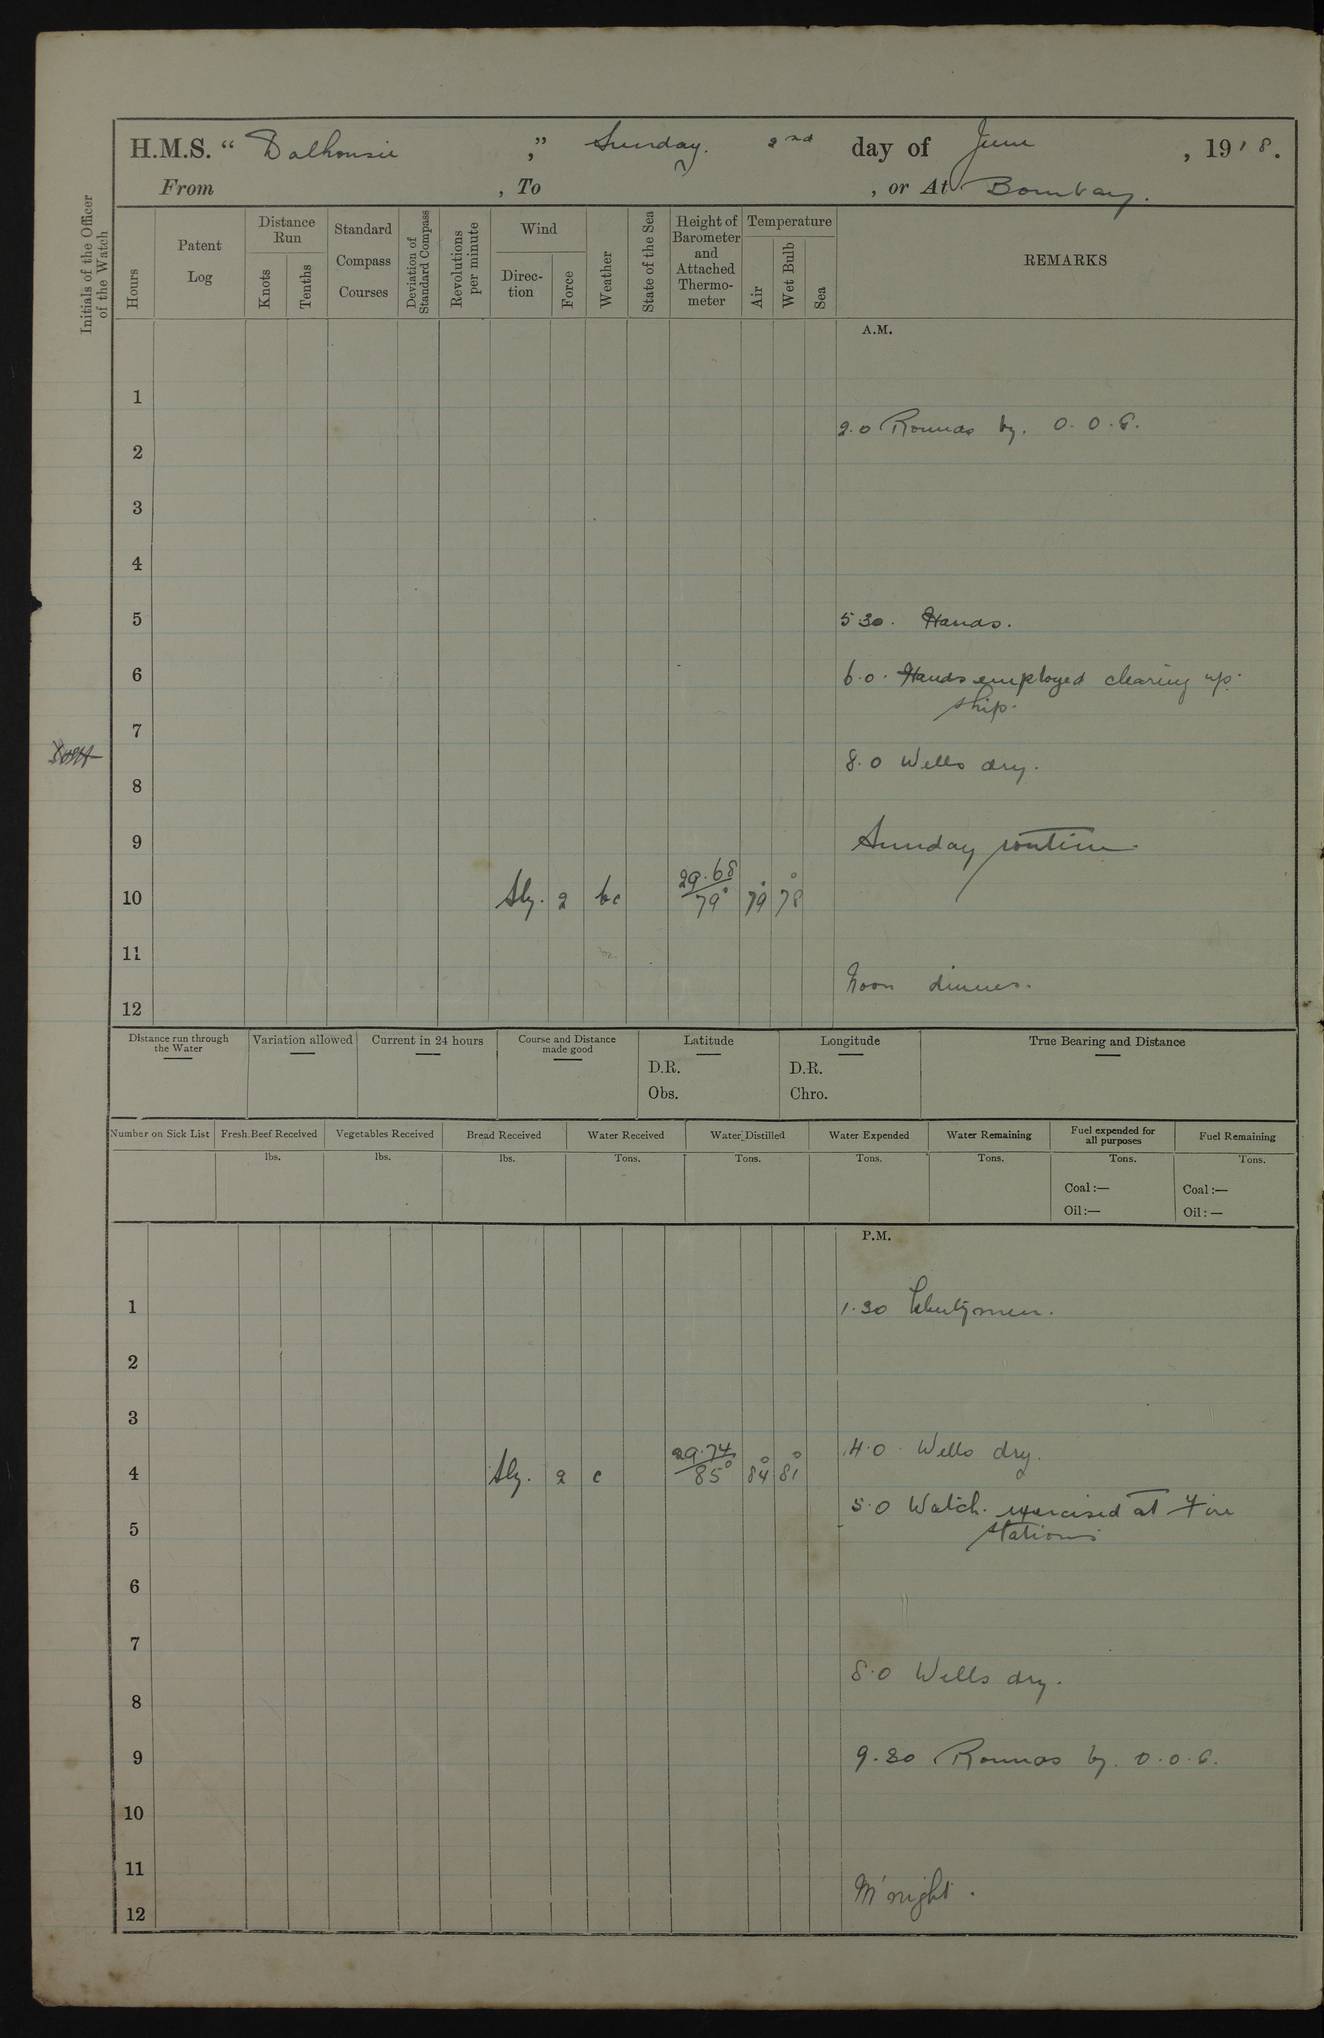 H.M.S. “ Dalhousie ,” Sunday. 2nd day of June , 1918.
From , To , or At Bombay.
Initials of the Officer
of the Watch
Hours
Patent
Log
Distance
Run
Knots
Tenths
Standard
Compass
Courses
Deviation of
Standard Compass
Revolutions
per minute
Wind
Direc-
tion
Force
Weather
State of the Sea
Height of
Barometer
and
Attached
Thermo-
meter
Temperature
Air
Wet Bulb
Sea
REMARKS
A.M.
1
2.0 Rounds by. O.O.G.
2
3
4
5 5 30. Hands.
6 6.0. Hands employed clearing up.
ship.
7
8.0 Wells dry.
8
9 Sunday routine.
10 Sly. 2 bc 29.68 79° 79° 78°
11
Noon dinner.
12
Distance run through
the Water
Variation allowed
Current in 24 hours
Course and Distance
made good
Latitude
D.R.
Obs.
Longitude
D.R.
Chro.
True Bearing and Distance
Number on Sick List
Fresh Beef Received
lbs.
Vegetables Received
lbs.
Bread Received
lbs.
Water Received
Tons.
Water Distilled
Tons.
Water Expended
Tons.
Water Remaining
Tons.
Fuel expended for
all purposes
Tons.
Coal :—
Oil :—
Fuel Remaining
Tons.
Coal :—
Oil : —
P.M.
1 1.30 Libertymen.
2
3
4.0. Wells dry.
4 Sly. 2 c 29.74 85° 84° 81°
5.0 Watch. exercised at Fire
stations
5
6
7
8.0 Wells dry.
8
9 9.30 Rounds by. O.O.G.
10
11
M'night.
12